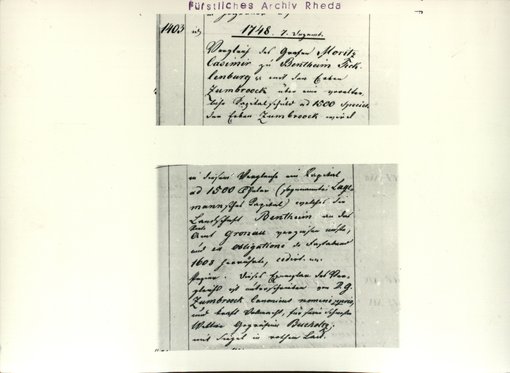 Fürstliches Archiv Rheda
1403
1748. 7. August.
Vergleich des Grafen Moritz
Casimir zu Bentheim Teck
lenburg mit den Erben
Zumbroeck über eine
Capitalschuld ad 1500 Specien.
Den Erben Zumbroeck wird
in diesem Vergleiche ein Capital
ad 1500 Thaler (sogenanntes Lag
mann'sches Capital) welches die
Landschaft Bentheim an das
Amt Gronau
und ex obligatione de
1603 herrührte, cedirt
Dieses Exemplar des Ver
gleichs ist unterschrieben von D. G.
Zumbroeck Canonicus nomine
und kraft Vollmacht, für seine Schwester
Wittwe Gogräfin Bucholtz;
mit Siegel in rothem Lack.